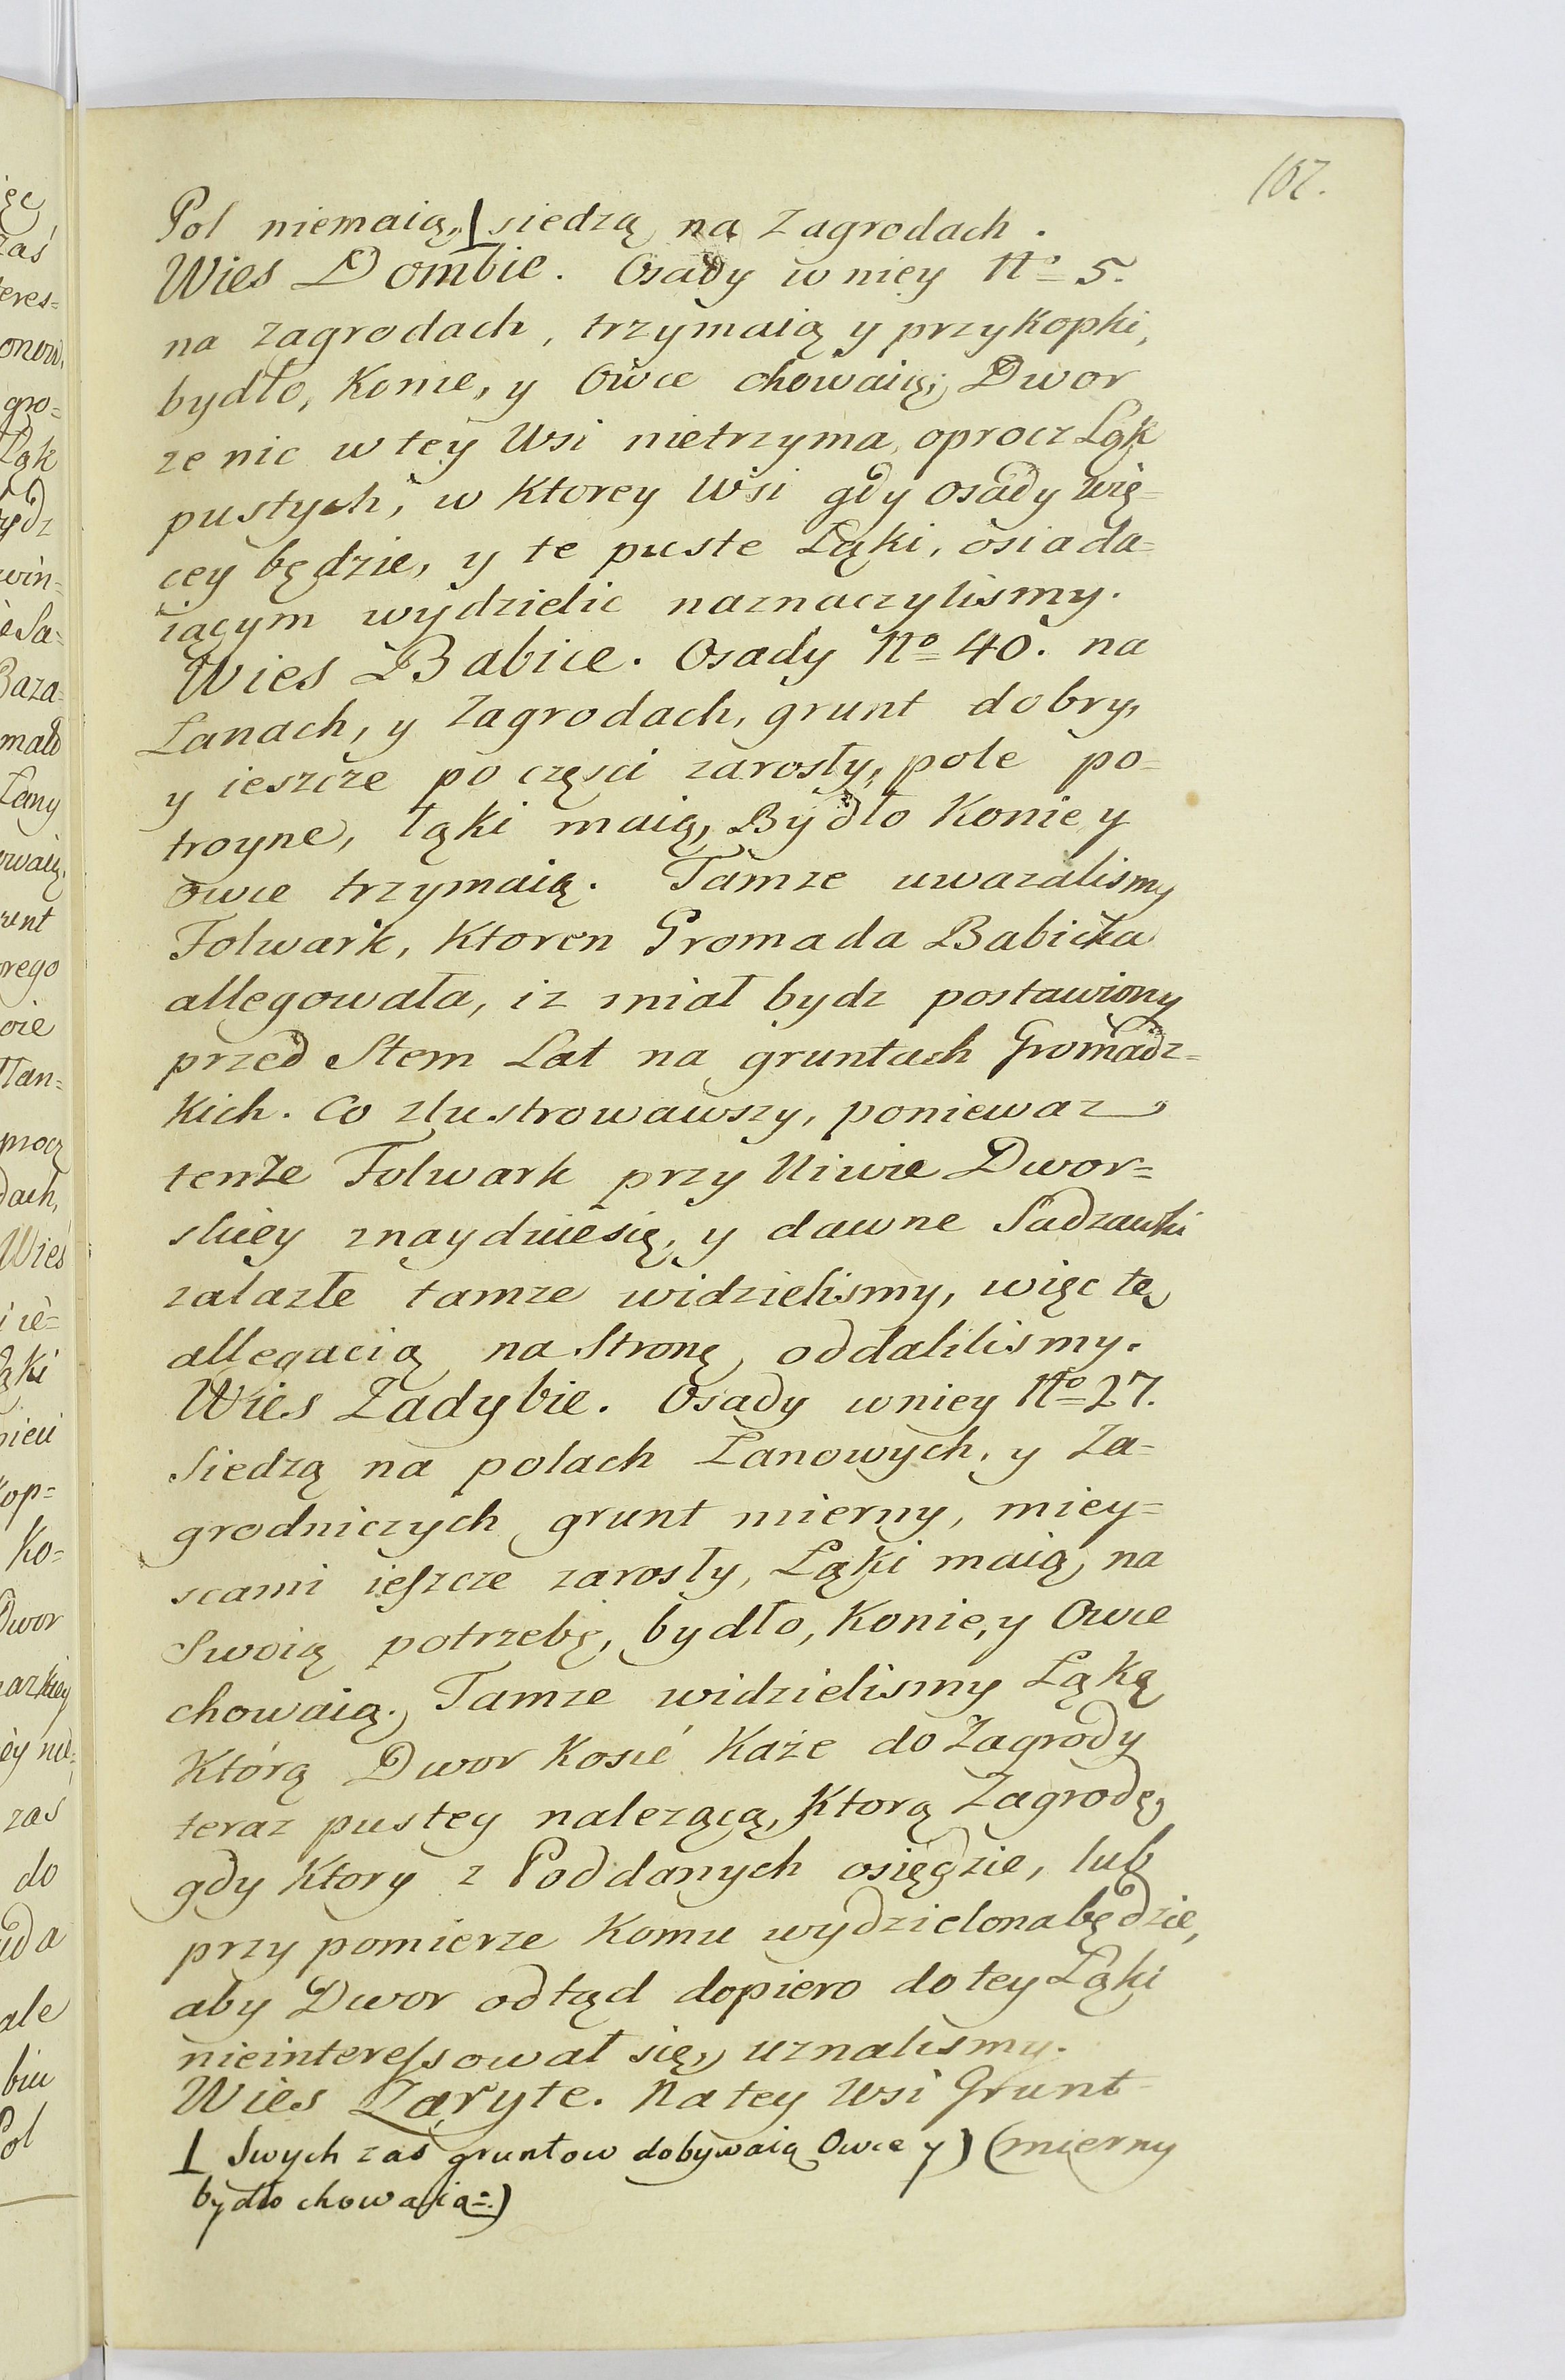 107.
Pol niemaią, ⊥ siedzą na Zagrodach.
Wies Dombie. Osady w niey No 5.
na zagrodach, trzymaią y przykopki,
bydło, Konie, y Owce chowaią; Dwor
ze nic w tey Wsi nietrzyma, oprocz Ląk
pustych, w Ktorey Wsi gdy osady wię=
cey będzie, y te puste Łąki, osiada=
iącym wydzielic naznaczylismy.
Wies Babice. Osady No 40. na
Łanach, y Zagrodach, grunt dobry,
y ieszcze po częsci zarosły, pole po=
troyne, łąki maią, Bydło Konie y
owce trzymaią. Tamze uwazalismy
Folwark, Ktoren Gromada Babicka
allegowała, iz miał bydz postawiony
przed Stem Lat na gruntach Gromadz=
kich. Co zlustrowawszy, poniewaz
tenże Folwark przy Niwie Dwor=
skiey znaydzie się, y dawne Sadzawki
zalazłe tamze widzielismy, więc tę
allegacią na Stronę oddalilismy.
Wies Zadybie. Osady w niey No 27.
Siedzą na polach Łanowych, y Za=
grodniczych grunt mierny, miey=
scami ieszcze zarosły, Łąki maią, na
Swoią potrzebę, bydło, Konie, y Owce
chowaią. Tamze widzielismy Łąkę
Którą Dwor Kosić Każe do Zagrody
teraz pustey nalezącą, Ktorą Zagrodę,
gdy Ktory z Poddanych osięgzie, lub
przy pomierze Komu wydzielona będzie,
aby Dwor odtąd dopiero do tey Łąki
nieinteressował się, uznalismy.
Wies Zaryte. Na tey Wsi Grunt
⊥ Swych zas gruntow dobywaią Owce y) (mierny
bydło chowaią=)
ięc
zaś
eres=
gro=
Łąk
win=
Baza=
mało
Łany
owaią.
runt
rego
Dwor
zas
do
ale
Pol